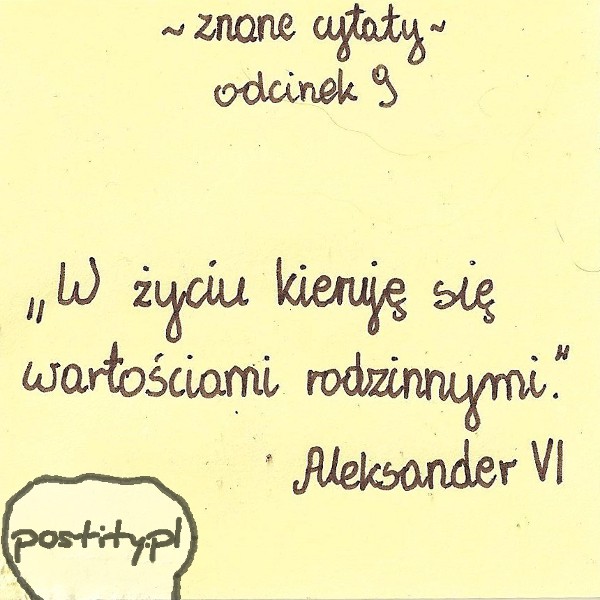 ~ znane cytaty ~
odcinek 9
„W życiu kieruję się
wartościami rodzinnymi."
Aleksander VI
postity.pl